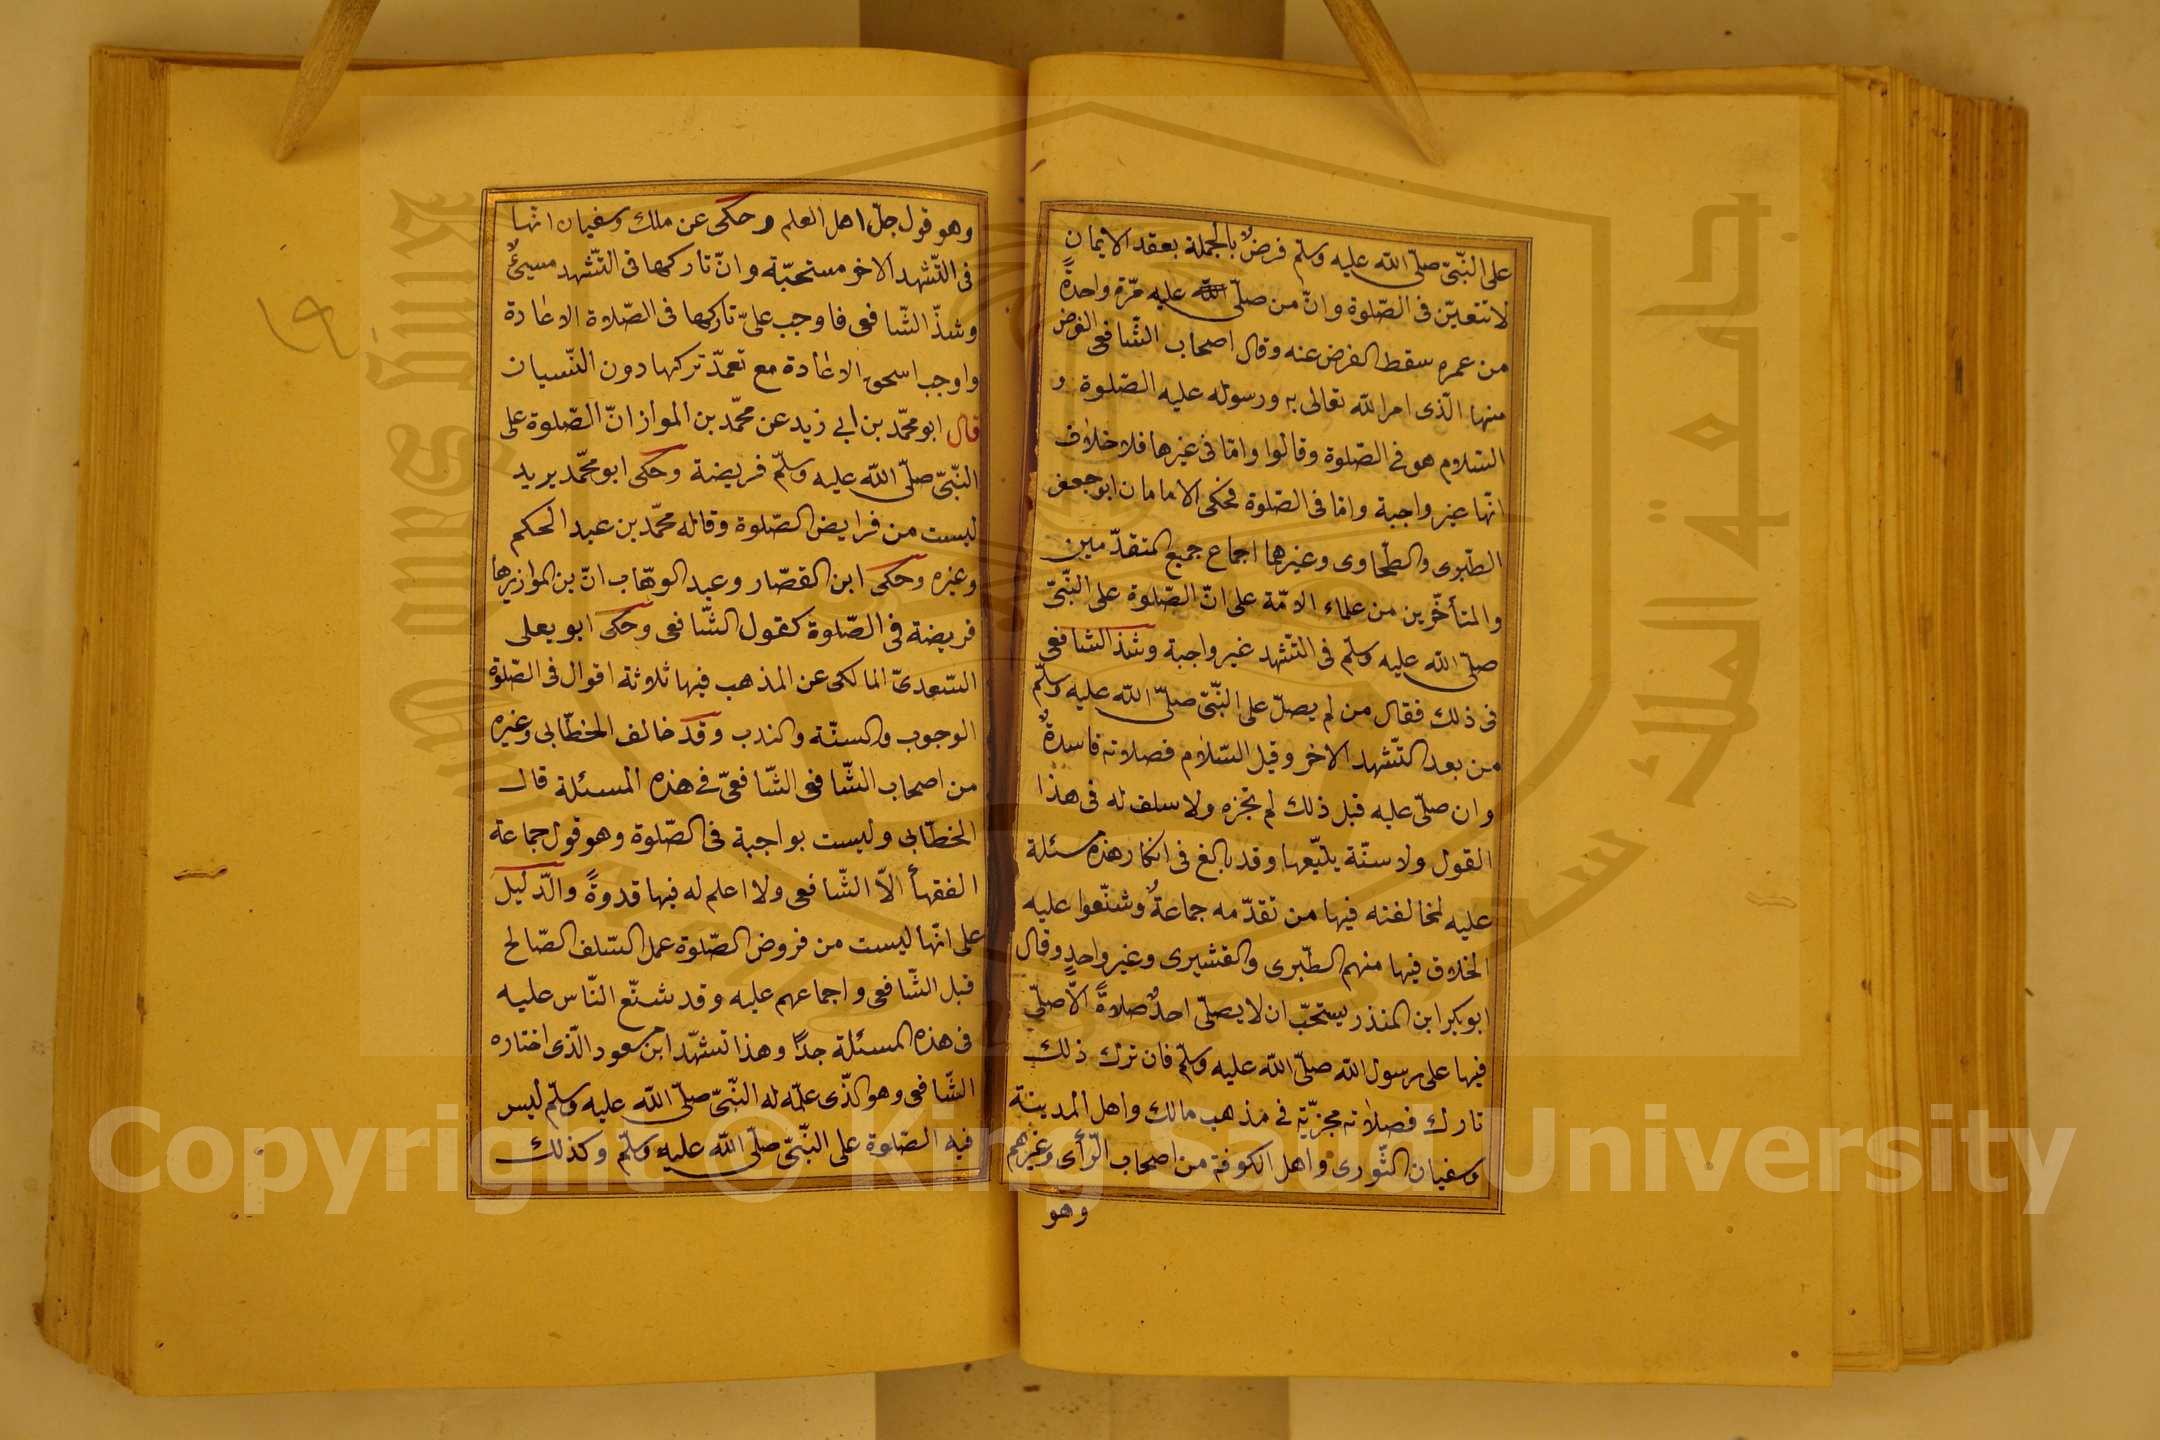 على النّبىّ صلّى الله عليه وسلّم فرضٌ بالجملة بعقد الايمان
لا تتعيّن فى الصّلوة وانّ من صلّى الله عليه مرّة واحدةً
من عمره سقط الفرض عنه وقال اصحاب الشّافعى الفرض
منها الّذى امر الله تعالى به ورسوله عليه الصّلوة و
السّلام هو فى الصّلوة وقالوا وامّا فى غيرها فلا خلاف
انّها غير واجبة وامّا فى الصّلوة فحكى الامامان ابو جعفر
الطّبرى والطّحاوى وغيرهما اجماع جميع المتقدّمين
والمتأخّرين من علماء الامّة على انّ الصّلوة على النّبىّ
صلّى الله عليه وسلّم فى التّشهد غير واجبة وشذ الشافعى
فى ذلك فقال من لم يصلّ على النّبىّ صلّى الله عليه وسلّم
من بعد التّشهد الاخر وقبل السّلام فصلاته فاسدةٌ
وان صلّى عليه قبل ذلك لم تجزه ولا سلف له فى هذا
القول ولا سنّة يتّبعها وقد بالغ فى انكار هذه مسئلة
عليه لمخالفته فيها من تقدّمه جماعةٌ وشنّعوا عليه
الخلاف فيها منهم الطّبرى والقشيرى وغير واحدٍ وقال
ابو بكر ابن المنذر يستحبّ ان لا يصلّى احدٌ صلاةً الّا صلّى
فيها على رسول الله صلّى الله عليه وسلّم فان ترك ذلك
تارك فصلاته مجزيّة فى مذهب مالك واهل المدينة
وسفيان الثّورى واهل الكوفة من اصحاب الرّأى وغيرهم
وهو
وهو قول جلّ اهل العلم وحكى عن ملك وسفيان انّها
فى التّشهد الاخر مستحبّة وانّ تاركها فى التّشهد مسيئٌ
وشذّ الشّافعى فاوجب على تاركها فى الصّلاة الاعادة
واوجب اسحق الاعادة مع تعمّد تركها دون النّسيان
قال ابو محمّد بن ابى زيد عن محمّد بن المواز انّ الصّلوة على
النّبىّ صلّى الله عليه وسلّم فريضة وحكى ابو محمّد يريد
ليست من فرايض الصّلوة وقاله محمّد بن عبد الحكم
وغيره وحكى ابن القصّار وعبد الوهّاب انّ بن المواز يرها
فريضة فى الصّلوة كقول الشّافعى وحكى ابو يعلى
السّعدىّ المالكى عن المذهب فيها ثلاثة اقوال فى الصّلوة
الوجوب والسنّة والندب وقد خالف الخطّابى وغيره
من اصحاب الشّافعى الشّافعىّ فى هذه المسئلة قال
الخطّابى وليست بواجبة فى الصّلوة وهو قول جماعة
الفقهأ الاّ الشّافعى ولا اعلم له فيها قدوةً والدّليل
على انّها ليست من فروض الصّلوة عمل السّلف الصّالح
قبل الشّافعى واجماعهم عليه وقد شنّع النّاس عليه
فى هذه المسئلة جدًا وهذا تشهّد ابن مسعود الّذى اختاره
الشّافعى وهو الّذى علّمه له النّبىّ صلّى الله عليه وسلّم ليس
فيه الصّلوة على النّبىّ صلّى الله عليه وسلّم وكذلك
جامعة الملك سعود
King Saud University
Copyright © King Saud University